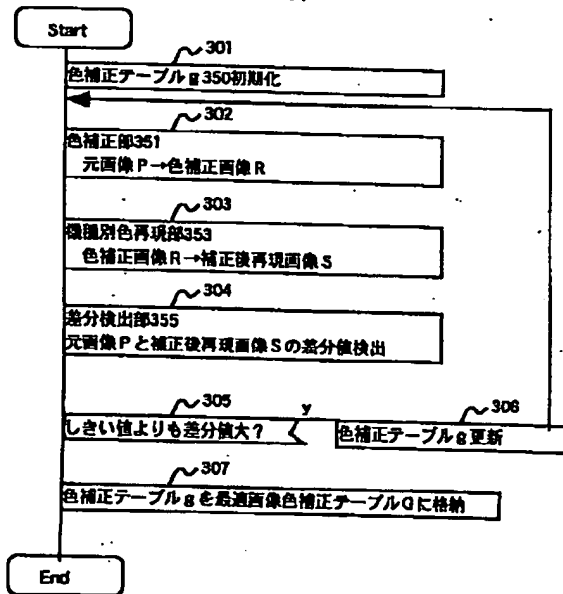 Start
301
色補正テーブルg350初期化
302
色補正部351
元画像P→色補正画像R
303
機種別色再現部353
色補正画像R→補正後再現画像S
304
差分検出部355
元画像Pと補正後再現画像Sの差分値検出
305
しきい値よりも差分値大?
y
306
色補正テーブルg更新
307
色補正テーブルgを最適画像色補正テーブルGに格納
End